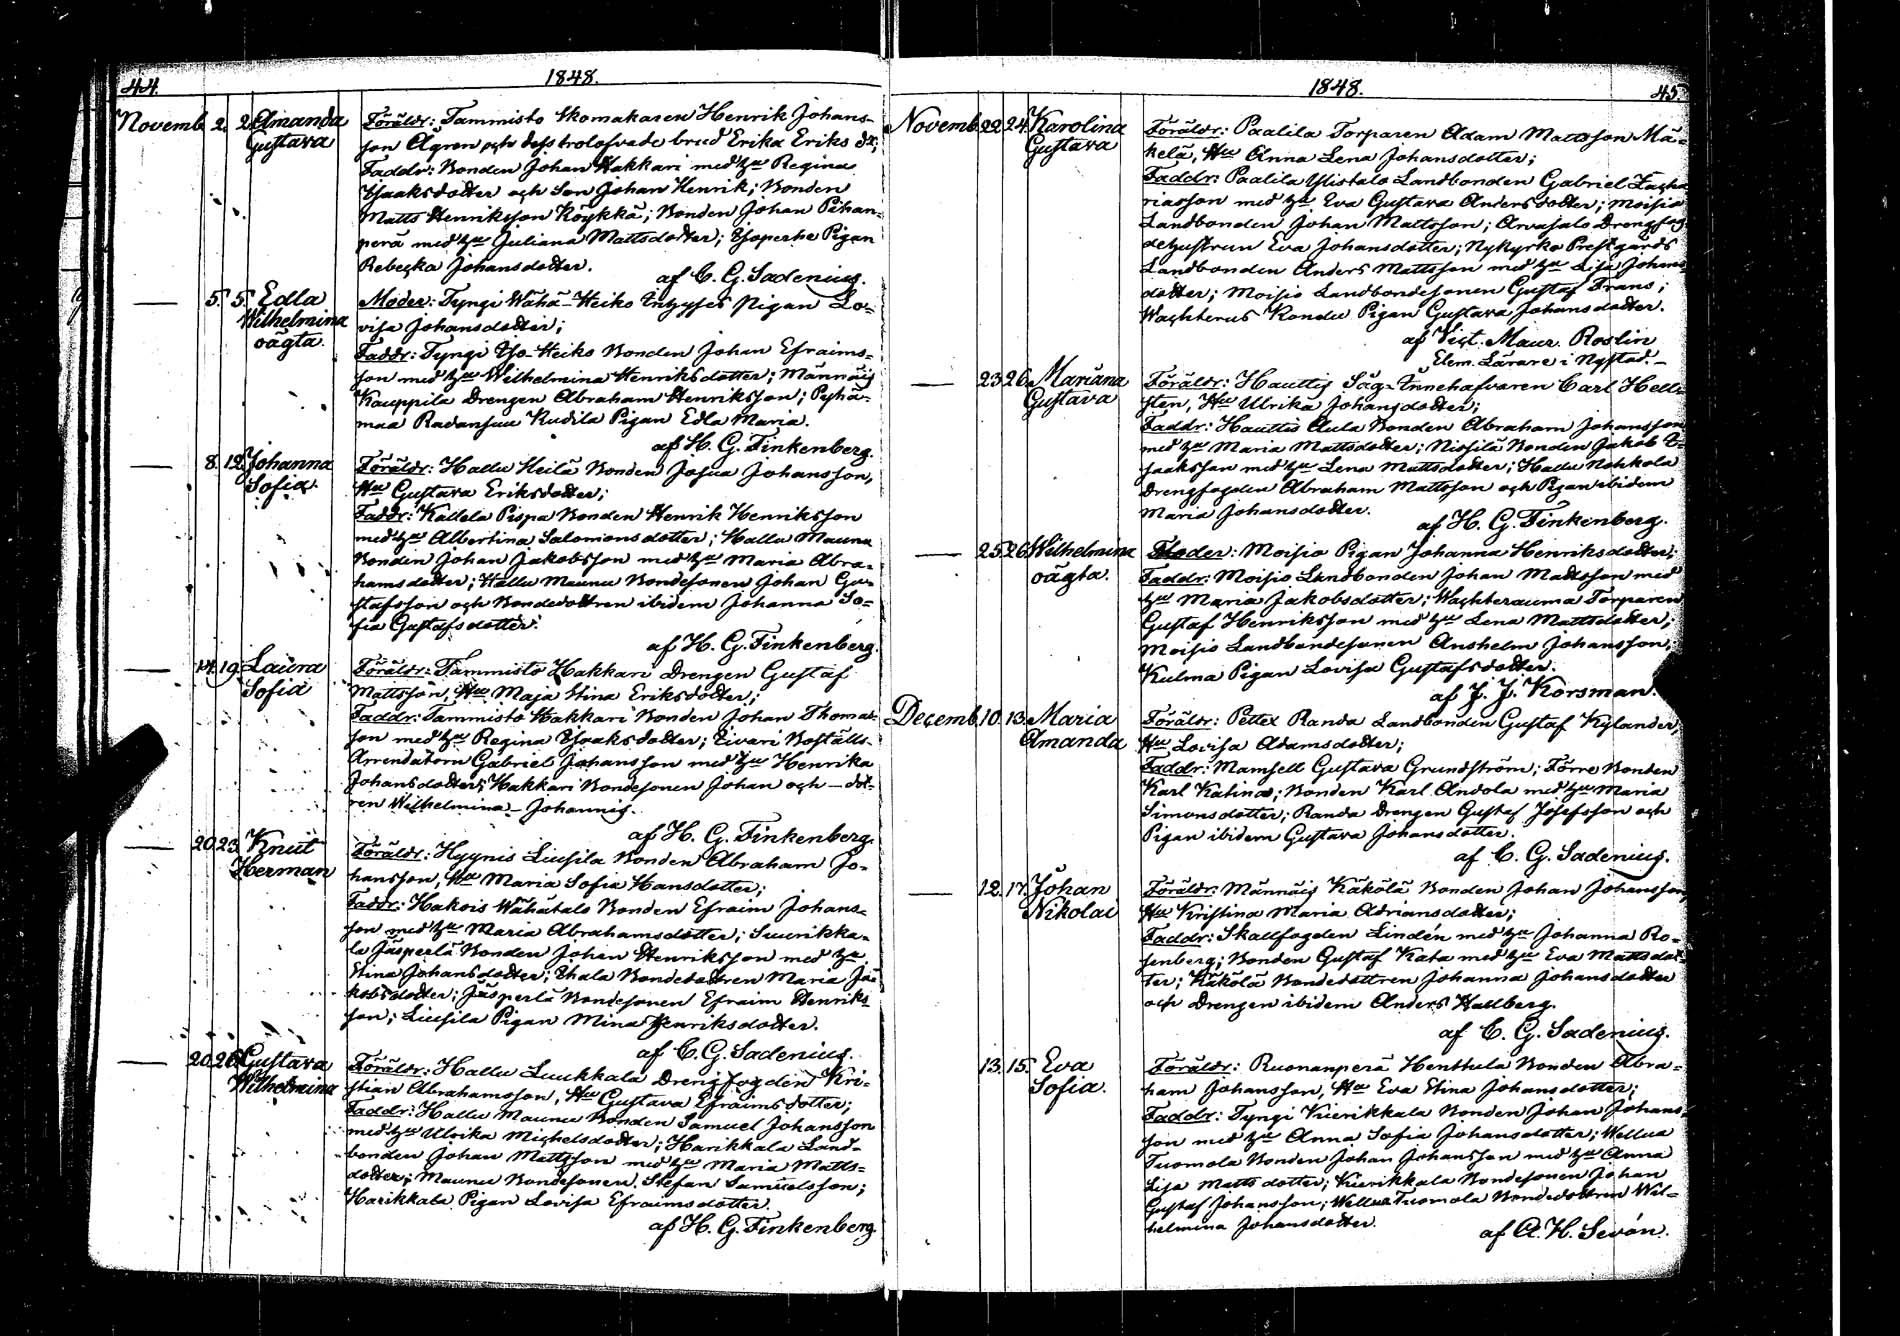 44.
1848.
Novemb. 2. 2. Amanda
Gustava
Föräldr: Tammisto Skomakaren Henrik Johans-
son Ågren och dess trolofvade brud Erika Eriks dr;
Faddr: Bonden Johan Hakkari med hu Regina
Isaksdotter och Son Johan Henrik; Bonden
Matts Henriksson Köykkä; Bonden Johan Pihan-
perä med hu Juliana Mattsdotter; Isoperhe Pigan
Rebecka Johansdotter.
af C. G. Sadenius.
— 5. 5. Edla
Wilhelmina
oägta.
Moder: Tyngi Wähä-Heiko Inhyses Pigan Lo-
visa Johansdotter;
Faddr: Tyngi Iso-Heiko Bonden Johan Efraims-
son med hu Wilhelmina Henriksdotter; Männäis
Kauppila Drengen Abraham Henriksson; Pyhä-
maa Radansuu Kudila Pigan Edla Maria.
af H. G. Finkenberg.
— 8. 12. Johanna
Sofia.
Föräldr: Hallu Heilä Bonden Josua Johansson,
Hu Gustava Eriksdotter;
Faddr: Kallela Pispa Bonden Henrik Henriksson
med hu Albertina Salomonsdotter; Hallu Maunu
Bonden Johan Jakobsson med hu Maria Abra-
hamsdotter; Hallu Maunu Bondesonen Johan Gu-
stafsson och Bondedottren ibidem Johanna So-
fia Gustafsdotter.
af H. G. Finkenberg.
— 14. 19. Laura
Sofia
Föräldr: Tammisto Hakkari Drengen Gustaf
Mattsson, Hu Maja Stina Eriksdotter;
Faddr: Tammisto Hakkari Bonden Johan Thomas-
son med hu Regina Isaksdotter; Eivari Boställs-
Arrendatorn Gabriel Johansson med hu Henrika
Johansdotter; Hakkari Bondesonen Johan och – dot-
ren Wilhelmina – Johannis.
af H. G. Finkenberg.
— 20. 23. Knut
Herman
Föräldr: Hyynis Liusila Bonden Abraham Jo-
hansson, Hu Maria Sofia Hansdotter;
Faddr: Hakois Wähätalo Bonden Efraim Johans-
son med hu Maria Abrahamsdotter; Suurikka-
la Jäsperlä Bonden Johan Henriksson med hu
Stina Johansdotter; Ihala Bondedottren Maria Ja-
kobsdotter; Jäsperlä Bondesonen Efraim Henriks-
son; Liusila Pigan Mina Henriksdotter.
af C. G. Sadenius.
— 20. 26. Gustava
Wilhelmina
Föräldr: Hallu Luukkala Drengfogden Kri-
stian Abrahamsson, Hu Gustava Efraimsdotter;
Faddr: Hallu Maunu Bonden Samuel Johansson
med hu Ulrika Michelsdotter; Harikkala Land-
bonden Johan Mattsson med hu Maria Matts-
dotter; Maunu Bondesonen Stefan Samuelsson;
Harikkala Pigan Lovisa Efraimsdotter.
af H. G. Finkenberg.
1848.
45.
Novemb. 22. 24. Karolina
Gustava
Föräldr: Paalila Torparen Adam Mattsson Mä-
kelä, Hu Anna Lena Johansdotter;
Faddr: Paalila Ylistalo Landbonden Gabriel Zacha
riasson med hu Eva Gustava Andersdotter; Moisio
Landbonden Johan Mattsson; Arvasalo Drengfog-
dehustrun Eva Johansdotter; Nykyrko Prestgårds
Landbonden Anders Mattsson med hu Lisa Johans-
dotter; Moisio Landbondesonen Gustaf Frans;
Wachterus Kondu Pigan Gustava Johansdotter.
af Vict. Maur. Roslin
Elem. Lärare i Nystad.–
— 23. 26. Mariana
Gustava
Föräldr: Hauttis Såg-Innehafvaren Carl Hell-
sten, Hu Ulrika Johansdotter;
Faddr: Hauttis Aula Bonden Abraham Johansson
med hu Maria Mattsdotter; Nissilä Bonden Jakob I-
saaksson med hu Lena Mattsdotter; Hallu Nohkola
Drengfogden Abraham Mattsson och Pigan ibidem
Maria Johansdotter.
af H. G. Finkenberg.
— 25. 26. Wilhelmina
oägta.
Moder: Moisio Pigan Johanna Henriksdotter;
Faddr: Moisio Landbonden Johan Mattsson med
hu Maria Jakobsdotter; Wachterauma Torparen
Gustaf Henriksson med hu Lena Mattsdotter;
Moisio Landbondesonen Anshelm Johansson,
Kulma Pigan Lovisa Gustafsdotter.
af J. J. Korsman.
Decemb. 10. 13. Maria
Amanda
Föräldr: Pettex Randa Landbonden Gustaf Kylander,
Hu Lovisa Adamsdotter;
Faddr: Mamsell Gustava Grundström; Förre Bonden
Karl Katina; Bonden Karl Andola med hu Maria
Simonsdotter; Randa Drengen Gustaf Josefsson och
Pigan ibidem Gustava Johansdotter.
af C. G. Sadenius.
— 12. 17. Johan
Nikolai
Föräldr: Männäis Käkölä Bonden Johan Johansson,
Hu Kristina Maria Adriansdotter;
Faddr: Skallfogden Lindén med hu Johanna Ro-
senberg; Bonden Gustaf Kata med hu Eva Mattsdot-
ter; Käkölä Bondedottren Johanna Johansdotter
och Drengen ibidem Anders Hallberg.
af C. G. Sadenius.
13. 15. Eva
Sofia.
Föräldr: Ruonanperä Henthula Bonden Abra-
ham Johansson, Hu Eva Stina Johansdotter;
Faddr: Tyngi Kierikkala Bonden Johan Johans-
son med hu Anna Sofia Johansdotter; Wellua
Tuomola Bonden Johan Johansson med hu Anna
Lisa Mattsdotter; Kierikkala Bondesonen Johan
Gustaf Johansson; Wellua Tuomola Bondedottren Wil-
helmina Johansdotter.
af A. H. Sevón.